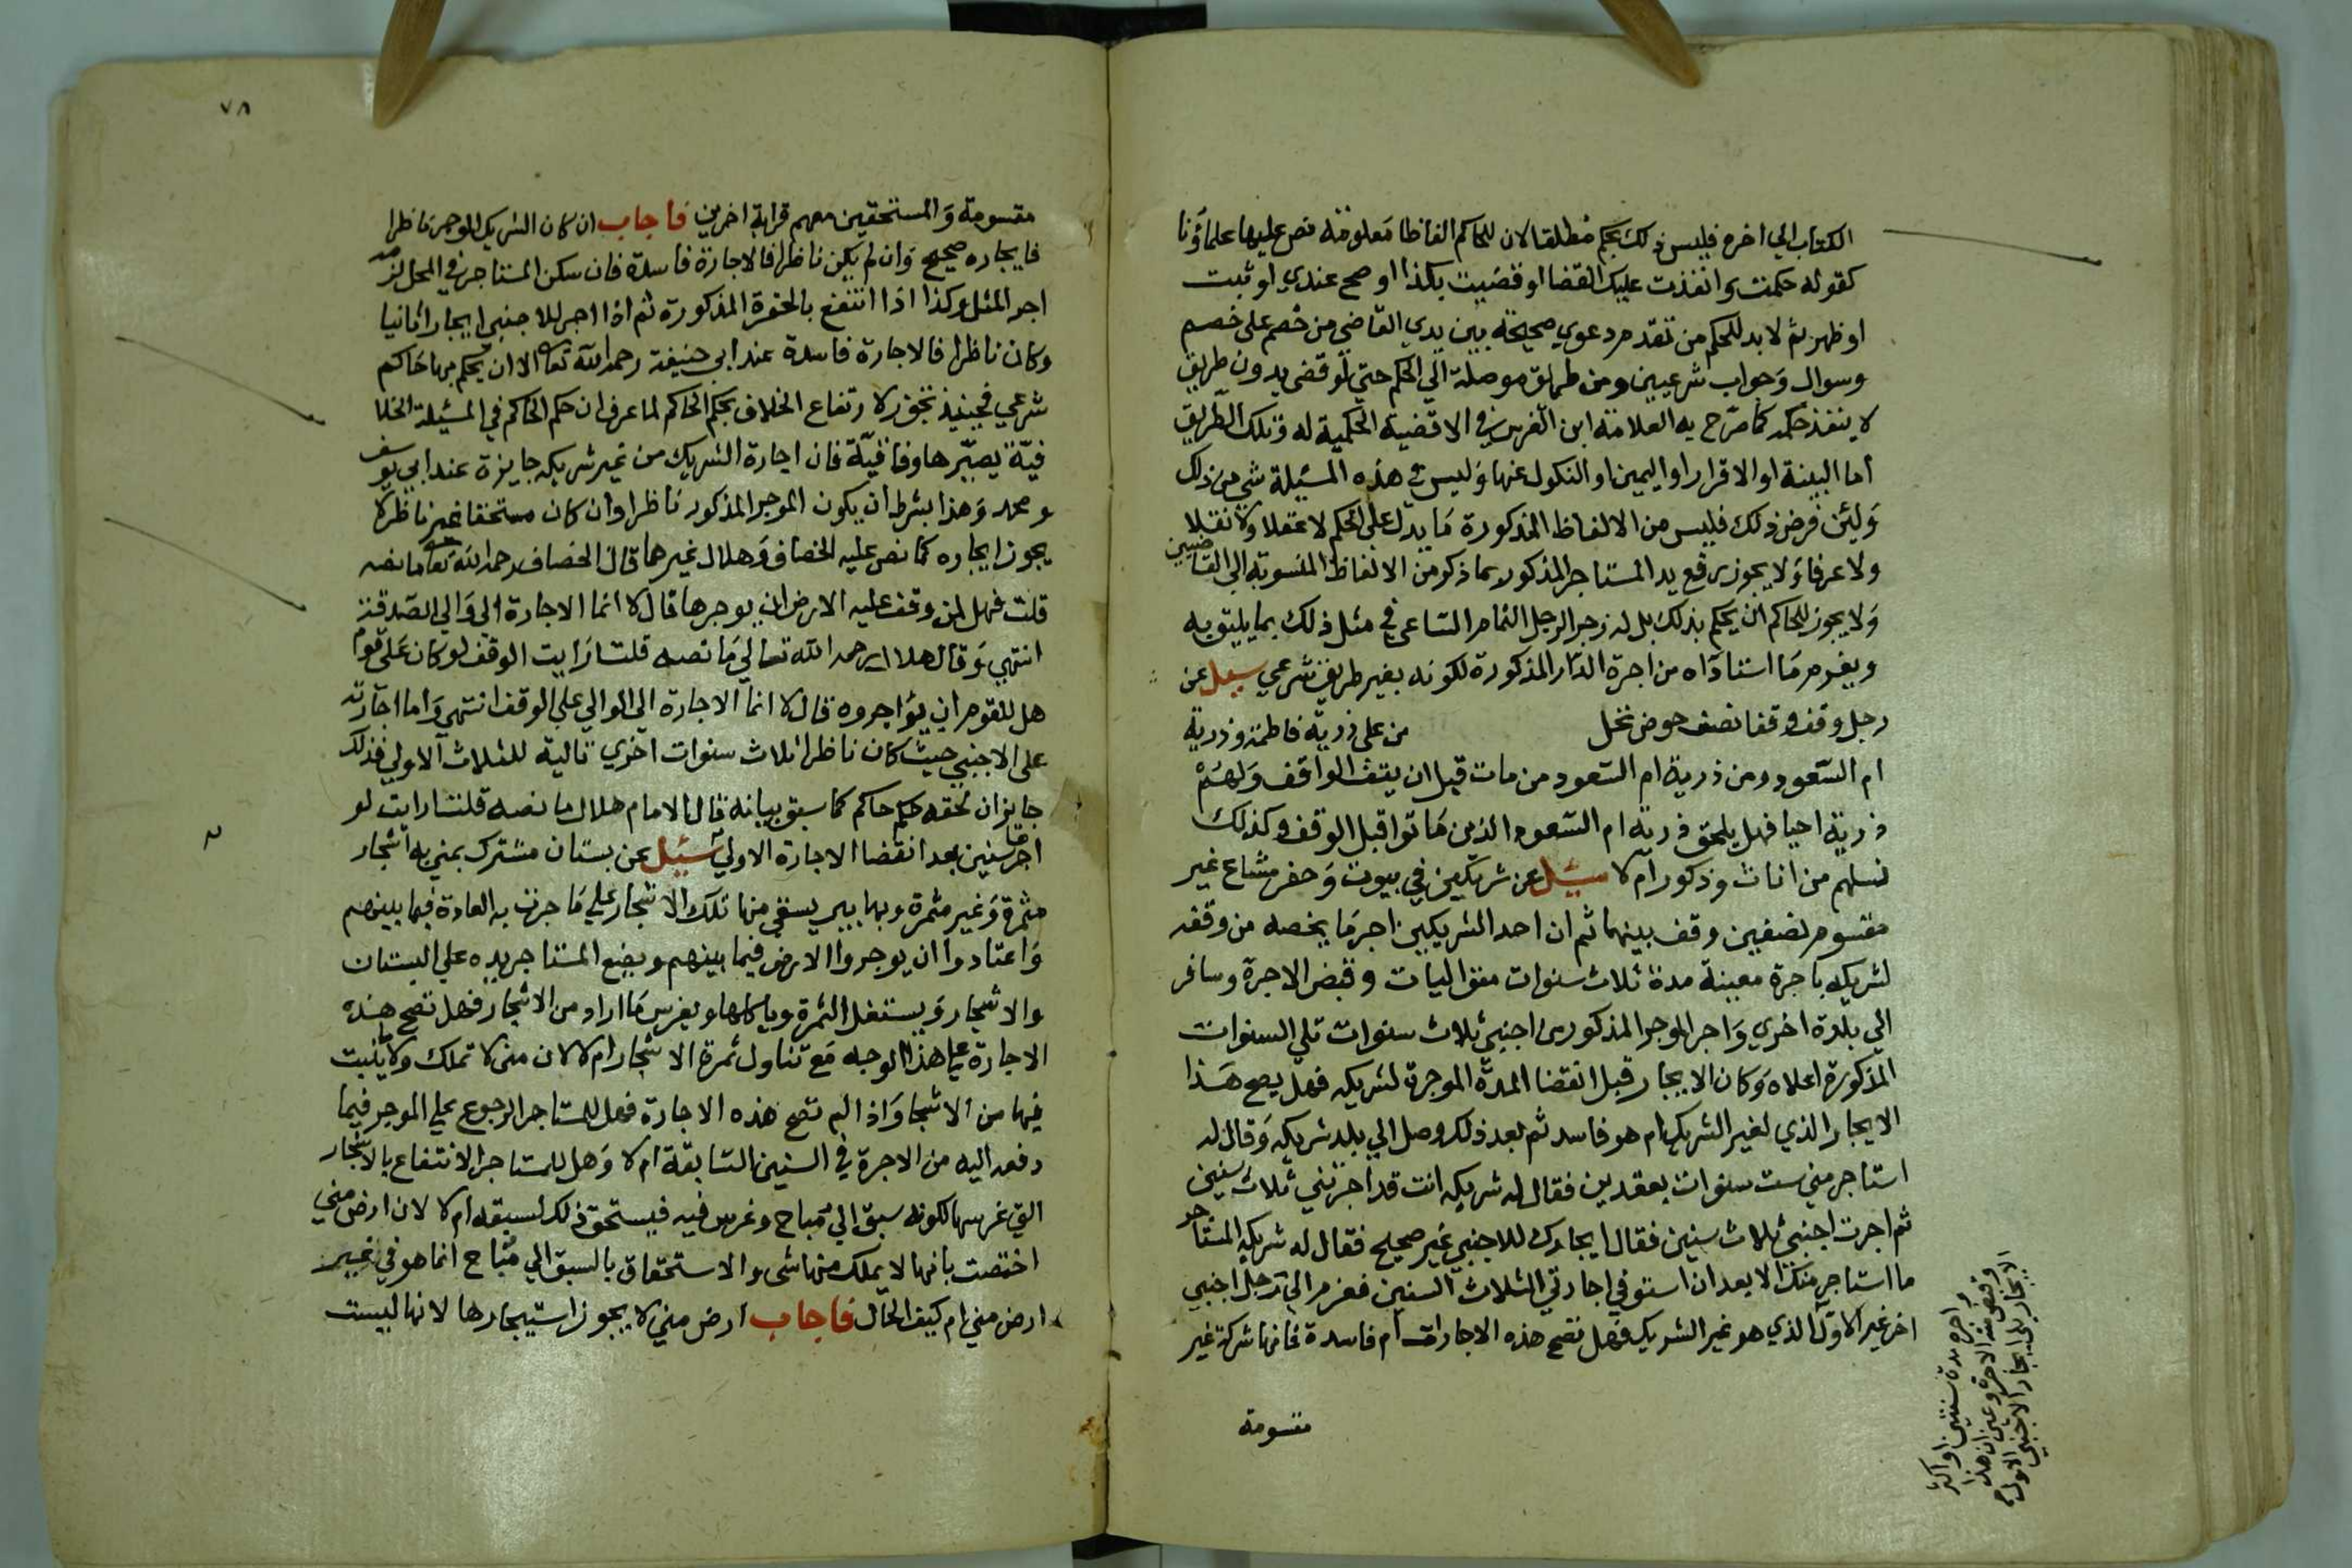 الكتاب الي اخره فليس ذلك بحكم مطلقا لان للحاكم الفاظا معلومة نص عليها علماؤنا
كقوله حكمت وانفذت عليك القضا او قضيت بكذا او صح عندي او ثبت
او ظهر ثم لا بد للحكم من تقدم دعوي صحيحة بين يدي القاضي من خصم على خصم
وسوال وجواب شرعيين ومن طريق موصلة الي الحكم حتي لو قضى بدون طريق
لا ينفذ حكمه كما صرح به العلامة ابن الغرس في الاقضية الحكمية له وتلك الطريق
اما البينة او الاقرار او اليمين او النكول عنها وليس في هذه المسئلة شي من ذلك
ولئن فرض ذلك فليس من الالفاظ المذكورة ما يدل على الحكم لا عقلا ولا نقلا
ولا عرفا ولا يجوز رفع يد المستاجر المذكور بما ذكر من الالفاظ المنسوبة الي القاضيين
ولا يجوز للحاكم ان يحكم بذلك بل له زجر الرجل النمام الساعي في مثل ذلك بما يليق به
ويغرم ما استاداه من اجرة الدار المذكورة لكونه بغير طريق شرعي سيل عن
رجل وقف وقفا نصف حوض نخل من على ذرية فاطمة وذرية
ام السعود ومن ذرية ام السعود من مات قبل ان يقف الواقف ولهم
ذرية احيا فهل يلحق ذرية ام السعود الذين ماتوا قبل الوقف وكذلك
نسلهم من اناث وذكور ام لا سيل عن شريكين في بيوت وحفر مشاع غير
مقسوم نصفين وقف بينهما ثم ان احد الشريكين اجر ما يخصه من وقفه
لشريكه باجرة معينة مدة ثلاث سنوات متواليات وقبض الاجرة وسافر
الي بلدة اخري واجر الموجر المذكور اجنبي ثلاث سنوات تلي السنوات
المذكورة اعلاه وكان الايجار قبل انقضا المدة الموجرة لشريكه فهل يصح هذا
الايجار الذي لغير الشريك ام هو فاسد ثم بعد ذلك وصل الي بلد شريكه وقال له
استاجر مني ست سنوات بعقدين فقال له شريكه انت قد اجرتني ثلاث سنين
ثم اجرت اجنبي ثلاث سنين فقال ايجارك للاجنبي غير صحيح فقال له شريكه المستاجر
ما استاجر منك الا بعد ان استوفي اجارتي الثلاث السنين فعزم الي رجل اجنبي
اخر غير الاول الذي هو غير الشريك فهل تصح هذه الاجارات ام فاسدة فانها شركة غير
مقسومة
اجره مدة سنتين او اكثر
وقبض منه الاجرة وعين ان هذا
الايجار يلي ايجار الاجنبي الاول
٧٨
مقسومة والمستحقين معهم قرابة اخرين فاجاب ان كان الشريك الموجر ناظرا
فايجاره صحيح وان لم يكن ناظرا فالاجارة فاسدة فان سكن المستاجر في المحل لزمه
اجر المثل وكذا اذا انتفع بالحفرة المذكورة ثم اذا اجر للاجنبي ايجارا ثانيا
وكان ناظرا فالاجارة فاسدة عند ابي حنيفة رحمه الله تعالى الا ان يحكم بها حاكم
شرعي فحينيذ تجوز لارتفاع الخلاف بحكم الحاكم لما عرف ان حكم الحاكم في المسئلة الخلا
فية يصيرها وفاقية فان اجارة الشريك من غير شريكه جايزة عند ابي يوسف
ومحمد وهذا بشرط ان يكون الموجر المذكور ناظرا وان كان مستحقا غير ناظر لا
يجوز ايجاره كما نص عليه الخصاف وهلال غيرهما قال الخصاف رحمه الله تعالى ما نصه
قلت فهل لمن وقف عليه الارض ان يوجرها قال لا انما الاجارة الي والي الصدقة
انتهي وقال هلال رحمه الله تعالي ما نصه قلت ارايت الوقف لو كان على قوم
هل للقوم ان يؤاجروه قال لا انما الاجارة الى الوالي علي الوقف انتهي واما اجارته
على الاجنبي حيث كان ناظرا ثلاث سنوات اخري تالية للثلاث الاولي فذلك
جايز ان لحقه حكم حاكم كما سبق بيانه قال الامام هلال ما نصه قلت ارايت لو
اجرها سنين بعد انقضا الاجارة الاولي سئيل عن بستان مشترك بمني به اشجار
مثمرة وغير مثمرة وبها بير يسقي منها تلك الاشجار علي ما جرت به العادة فيما بينهم
واعتادوا ان يوجروا الارض فيما بينهم ويضع المستاجر يده علي البستان
والاشجار ويستغل الثمرة وياكلها ويغرس ما اراد من الاشجار فهل تصح هذه
الاجارة على هذا الوجه مع تناول ثمرة الاشجار ام لا لان منى لا تملك ولا يثبت
فيها من الاشجار واذا لم تصح هذه الاجارة فهل للمستاجر الرجوع على الموجر فيما
دفعه اليه من الاجرة في السنين السابقة ام لا وهل للمستاجر الانتفاع بالاشجار
التي غرسها لكونه سبق الي مباح وغرس فيه فيستحق ذلك لسبقه ام لا لان ارض مني
اختصت بانها لا يملك منها شي والاستحقاق بالسبق الي مباح انما هو في غير
ارض مني ام كيف الحال فاجاب ارض مني لا يجوز استيجارها لانها ليست